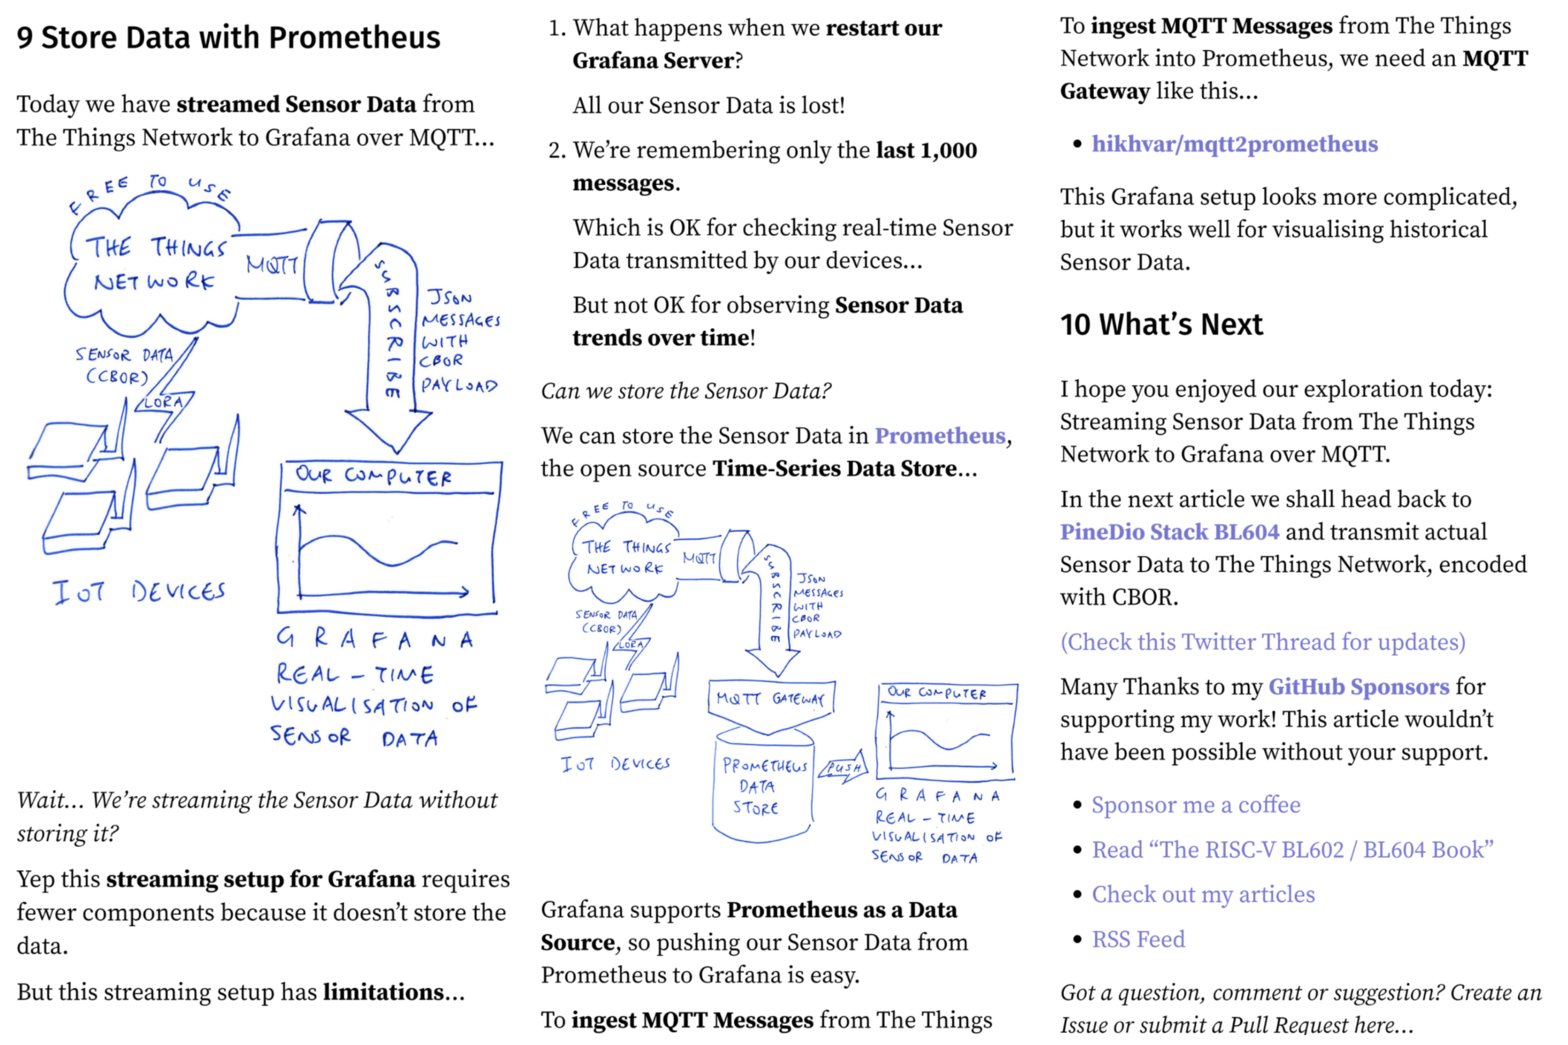 9 Store Data with Prometheus
Today we have streamed Sensor Data from
The Things Network to Grafana over MQTT…
FREE TO USE
THE THINGS
NETWORK
MQTT
SUBSCRIBE
JSON
MESSAGES
WITH
CBOR
PAYLOAD
SENSOR DATA
(CBOR)
LORA
IOT DEVICES
OUR COMPUTER
GRAFANA
REAL-TIME
VISUALISATION OF
SENSOR DATA
Wait… We’re streaming the Sensor Data without
storing it?
Yep this streaming setup for Grafana requires
fewer components because it doesn’t store the
data.
But this streaming setup has limitations…
1. What happens when we restart our
Grafana Server?
All our Sensor Data is lost!
2. We’re remembering only the last 1,000
messages.
Which is OK for checking real-time Sensor
Data transmitted by our devices…
But not OK for observing Sensor Data
trends over time!
Can we store the Sensor Data?
We can store the Sensor Data in Prometheus,
the open source Time-Series Data Store…
FREE TO USE
THE THINGS
NETWORK
MQTT
SUBSCRIBE
JSON
MESSAGES
WITH
CBOR
PAYLOAD
SENSOR DATA
(CBOR)
LORA
IOT DEVICES
MQTT GATEWAY
PROMETHEUS
DATA
STORE
PUSH
OUR COMPUTER
GRAFANA
REAL-TIME
VISUALISATION OF
SENSOR DATA
Grafana supports Prometheus as a Data
Source, so pushing our Sensor Data from
Prometheus to Grafana is easy.
To ingest MQTT Messages from The Things
To ingest MQTT Messages from The Things
Network into Prometheus, we need an MQTT
Gateway like this…
• hikhvar/mqtt2prometheus
This Grafana setup looks more complicated,
but it works well for visualising historical
Sensor Data.
10 What’s Next
I hope you enjoyed our exploration today:
Streaming Sensor Data from The Things
Network to Grafana over MQTT.
In the next article we shall head back to
PineDio Stack BL604 and transmit actual
Sensor Data to The Things Network, encoded
with CBOR.
(Check this Twitter Thread for updates)
Many Thanks to my GitHub Sponsors for
supporting my work! This article wouldn’t
have been possible without your support.
• Sponsor me a coffee
• Read “The RISC-V BL602 / BL604 Book”
• Check out my articles
• RSS Feed
Got a question, comment or suggestion? Create an
Issue or submit a Pull Request here…